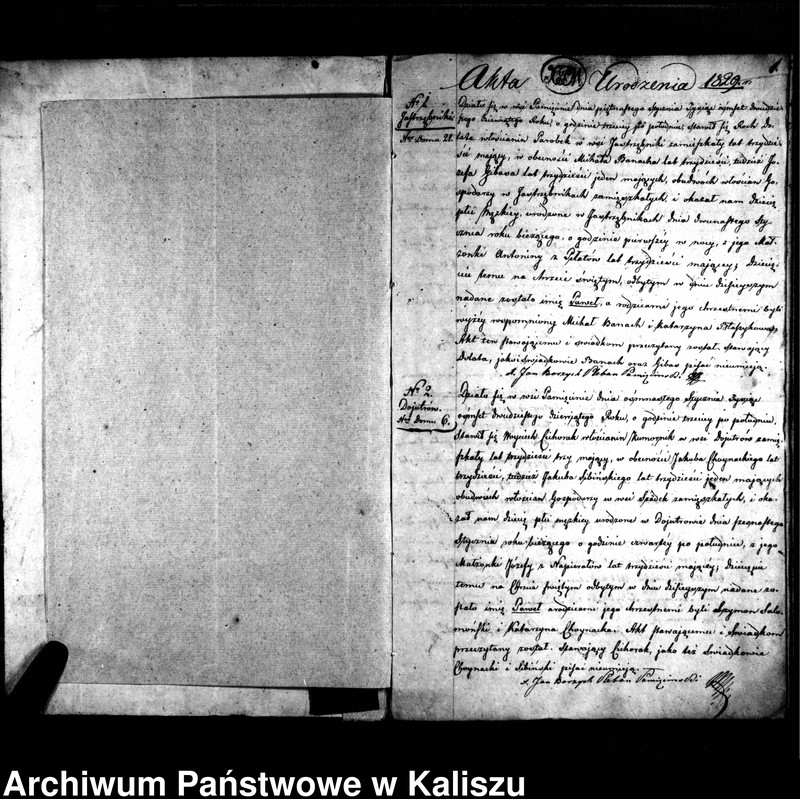 Akta Urodzenia 1829.
1
No 1.
Jastrzębniki
Nro Domu 21.
Działo się w wsi Pamięcinie dnia piętnastego Stycznia Tysiąc ośmset dwudzie-
stego dziewiątego Roku, o godzinie trzeciey po południu, Stawił się Roch Do-
lata włościanin Parobek w wsi Jastrzębniki zamieszkały lat trzydzie-
ści maiący, w obecności Michała Banacha lat trzydzieści, tudzież Jo-
zefa Gibasa lat trzydzieści jeden maiących, obudwóch włościan Go-
spodarzy w Jastrzębnikach zamieszkałych, i okazał nam dziecię
płci Męzkiey, urodzone w Jastrzębnikach dnia dwunastego Sty-
cznia roku bieżącego, o godzinie pierwszéy w nocy, z jego Mał-
żonki Antoniny z lat trzydzieści maiący; Dziecię-
ciu temu na chrzcie świętym, odbytym w dniu dzisieyszym
nadane zostało imię Paweł, a rodzicami jego chrzestnemi byli
wyżéy wspomniony Michał Banach i Katarzyna
Akt ten stawaiącemu i świadkom przeczytany został. Stawaiący
Dolata, jako i świadkowie Banach oraz Gibas pisać nieumieją.
x. Jan Borzych Pleban Pamięcinski
No 2.
Dojutrów.
Nro Domu 6.
Działo się w wsi Pamięcinie dnia ośmnastego Stycznia Tysiąc
ośmset dwudziestego dziewiątego Roku, o godzinie trzeciey po południu,
Stawił się Woyciech Cichorak włościanin Komornik w wsi Dojutrów zamie-
szkały lat trzydzieści trzy maiący, w obecności Jakuba Choynackiego lat
trzydzieści, tudzież Jakuba Sibińskiego lat trzydzieści jeden maiących
obudwóch włościan Gospodarzy w wsi Szadek zamieszkałych, i oka-
zał nam dziecię płci męzkiey urodzone w Dojutrowie dnia szesnastego
Stycznia roku bieżącego o godzinie czwartéy po południu, z jego
Małżonki Józefy z Napierałów lat trzydzieści maiący; Dziecięciu
temu na Chrzcie świętym odbytym w dniu dzisieyszym nadane zo-
stało imię Paweł a rodzicami jego chrzestnemi byli Szymon Salo-
moński i Katarzyna Choynacka. Akt stawaiącemu i Świadkom
przeczytany został. Stawaiący Cichorak, jako też Świadkowie
Choynacki i Sibiński pisać nieumieją.
x. Jan Borzych Pleban Pamięcinski
Archiwum Państwowe w Kaliszu